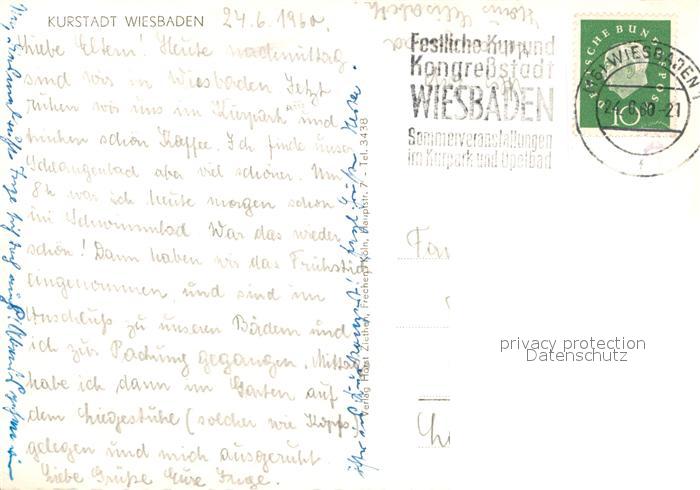 KURSTADT WIESBADEN
24.6.1960.
Liebe Eltern! Heute nachmittag
sind wir in Wiesbaden. Jetzt
ruhen wir uns im Kurpark aus und
trinken schön Kaffee. Ich finde unser
Schlangenbad aber viel schöner. Um
8h war ich heute morgen schon
im Schwimmbad. War das wieder
schön! Dann haben wir das Frühstück
eingenommen, und sind im
Anschluß zu unseren Bädern und
ich zur Packung gegangen. Mittag
habe ich dann im Garten auf
dem Liegestühle (solcher wie Kopps)
gelegen und mich ausgeruht.
Liebe Grüße Eure Inge.
Verlag Horst Ziethen, Frechen/Köln, Hauptstr. 7 - Tel. 3438
Festliche Kur und
Kongreßstadt
WIESBADEN
Sommerveranstaltungen
im Kurpark und Opelbad
DEUTSCHE BUNDESPOST
10
(16) WIESBADEN 1
24.6.60-21
privacy protection
Datenschutz